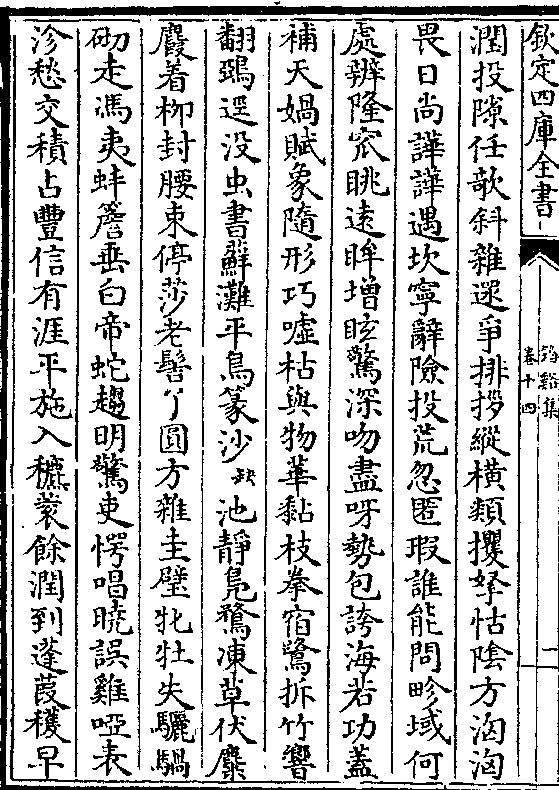 欽定四庫全書
筠谿集
卷十四
一
潤投隙任欹斜雜遝爭排拶縱橫類攫拏怙陰方洶洶
畏日尚譁譁遇坎寧辭險投荒忽匿瑕誰能問畛域何
處辨隆窊眺遠眸增眩驚深吻盡呀勢包誇海若功蓋
補天媧賦象隨形巧噓枯與物華黏枝拳宿鷺拆竹響
翻鵶逕没虫書蘚灘平鳥篆沙缺池靜鳬鶩凍草伏麋
麚着柳封腰束停莎老髻丫圓方雜圭璧牝牡失驪騧
砌走馮夷蚌簷垂白帝蛇趨明驚吏愕唱曉誤雞啞表
沴愁交積占豐信有涯平施入穮蓘餘潤到蓬葭穫早